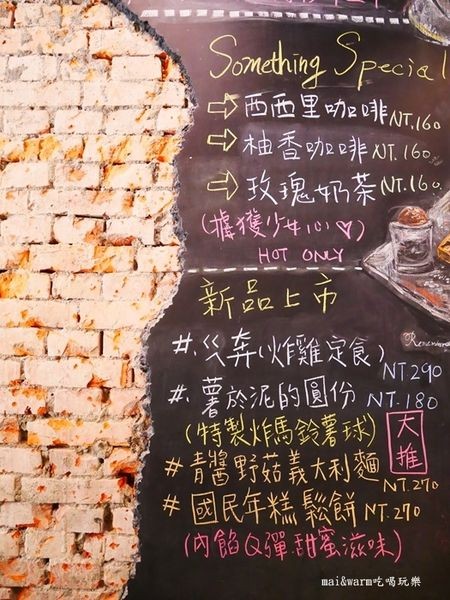 Something Special
⇨西西里咖啡NT.160
⇨柚香咖啡NT.160
⇨玫瑰奶茶NT.160
(擄獲少女心♡)
HOT ONLY
新品上市
#.災奔(炸雞定食)NT290
#.薯於泥的圓份NT.180
(特製炸馬鈴薯球)
大推
#青醬野菇義大利麵NT.270
#國民年糕鬆餅NT.270
(內餡Q彈.甜蜜滋味)
mai&warm吃喝玩樂